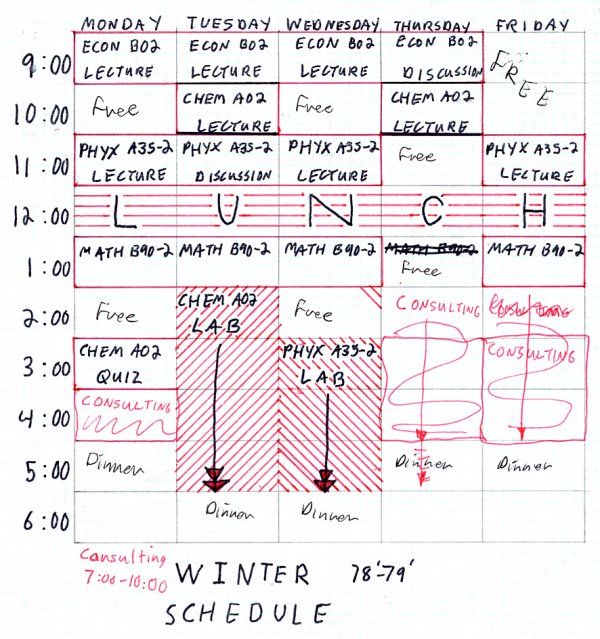 MONDAY TUESDAY WEDNESDAY THURSDAY FRIDAY
9:00 ECON B02 ECON B02 ECON B02 ECON B02 FREE
LECTURE LECTURE LECTURE DISCUSSION
10:00 Free CHEM A02 Free CHEM A02
LECTURE LECTURE
11:00 PHYX A35-2 PHYX A35-2 PHYX A35-2 Free PHYX A35-2
LECTURE DISCUSSION LECTURE LECTURE
12:00 L U N C H
1:00 MATH B90-2 MATH B90-2 MATH B90-2 MATH B90-2 MATH B90-2
Free
2:00 Free CHEM A02 Free CONSULTING CONSULTING
LAB
3:00 CHEM A02 PHYX A35-2 CONSULTING
QUIZ LAB
4:00 CONSULTING
5:00 Dinner Dinner Dinner
6:00 Dinner Dinner
Consulting
7:00-10:00
WINTER 78'-79'
SCHEDULE